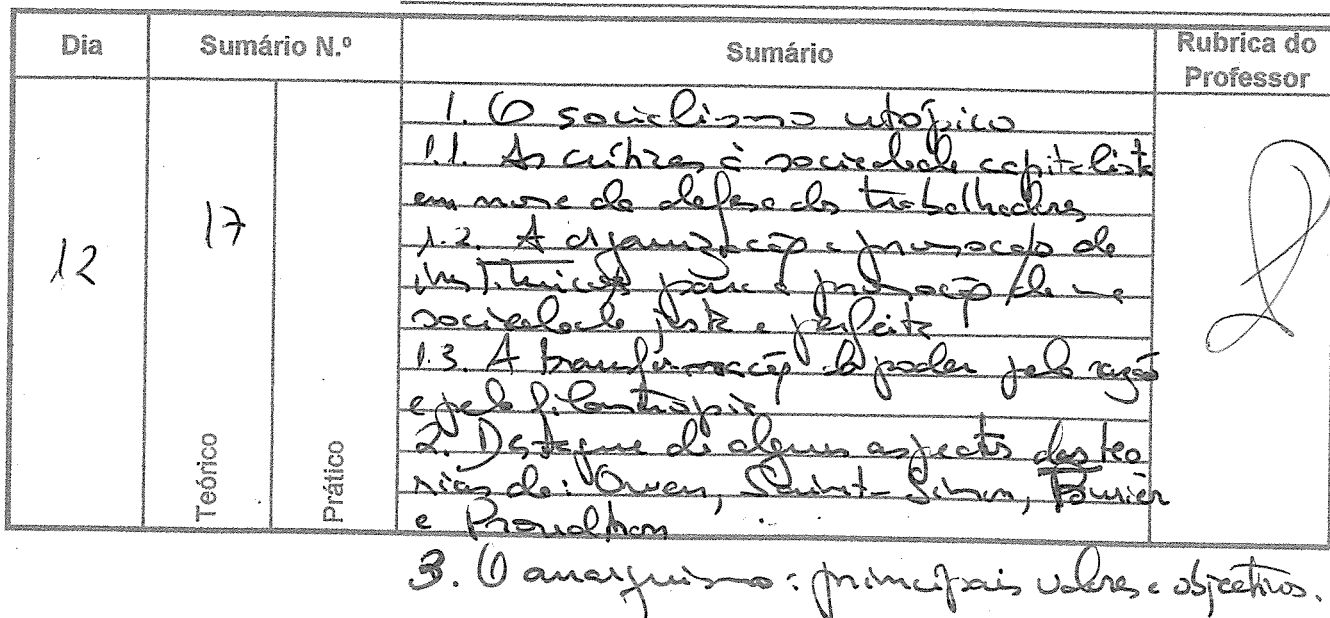 Dia
Sumário N.º
Sumário
Rubrica do
Professor
12
17
Teórico
Prático
1. O socialismo utópico
1.1. As críticas à sociedade capitalista
em nome da defesa dos trabalhadores
1.2. A organização e promoção de
instituições para a promoção de uma
sociedade justa e perfeita
1.3. A transformação do poder pela razão
e pela filantropia
2. Destaque de alguns aspectos das teo
rias de: Owen, Saint-Simon, Fourier
e Proudhon
3. O anarquismo: principais valores e objectivos.